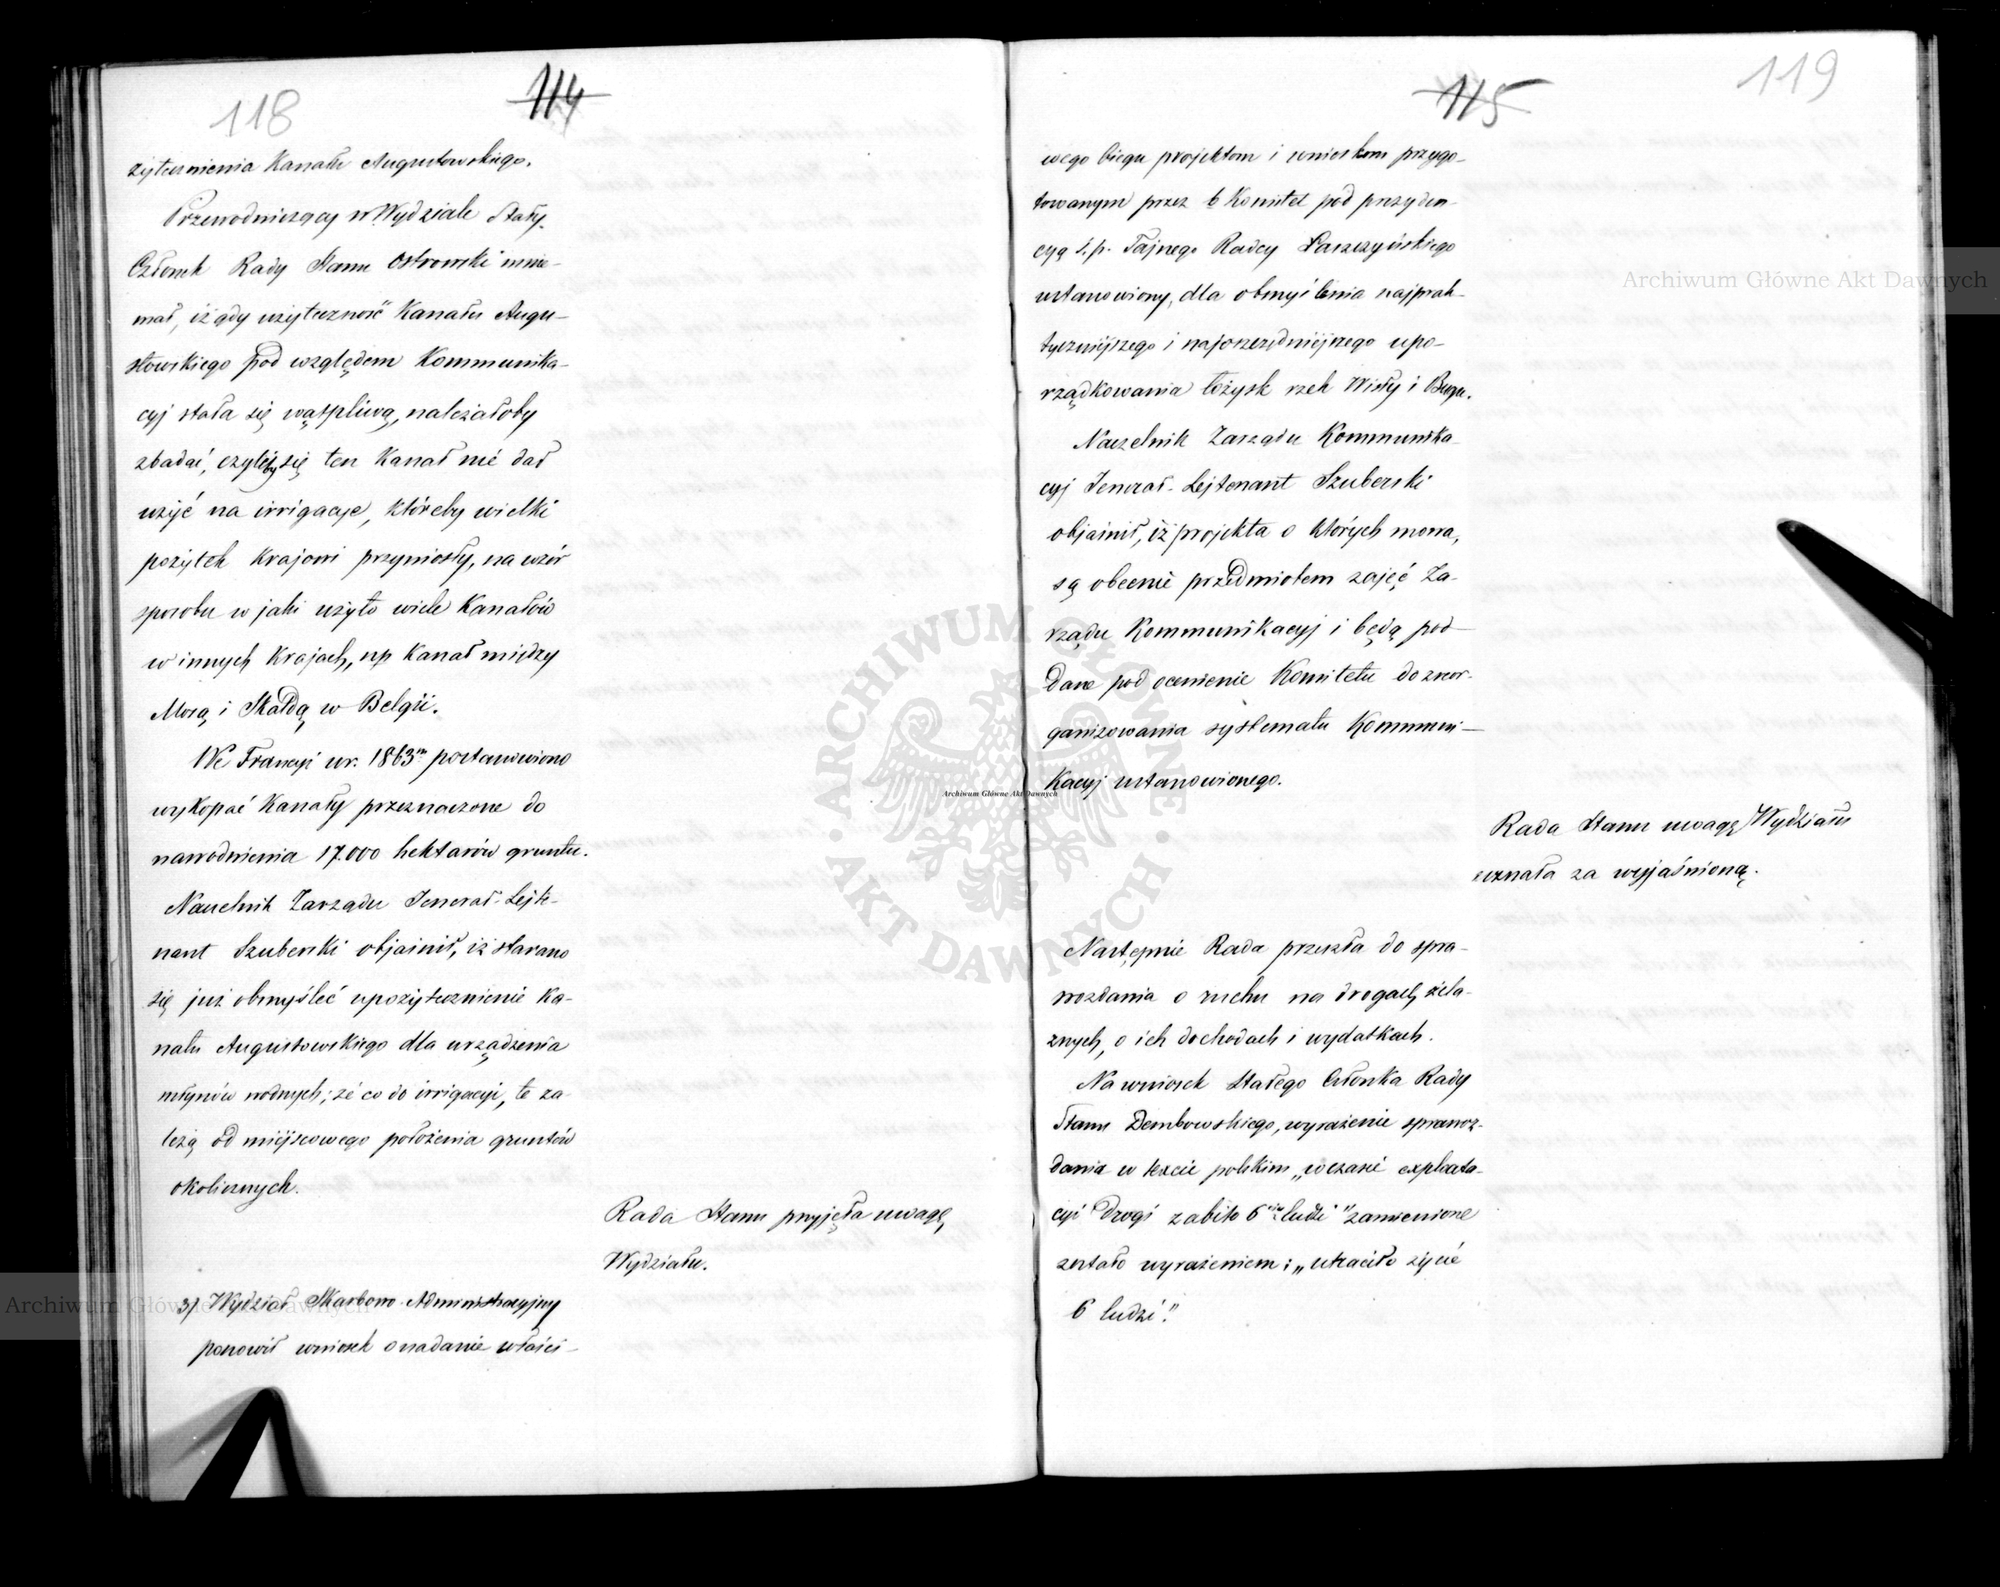 118
114
żytecznienia Kanału Augustowskiego.
Przewodniczący w Wydziale Stały
Członek Rady Stanu Ostrowski mnie-
mał, iż gdy użyteczność Kanału Augu-
stowskiego pod względem Kommunika-
cyj stała się wątpliwą, należałoby
zbadać, czyliby się ten Kanał nie dał
użyć na irrigacye, któreby wielki
pożytek Krajowi przyniosły, na wzór
sposobu w jaki użyto wiele Kanałów
w innych Krajach, np Kanał między
Mozą i Skaldą w Belgii.
We Francyi w r. 1863m postanowiono
wykopać Kanały przeznaczone do
nawodnienia 17.000 hektarów gruntu.
Naczelnik Zarządu Jenerał-Lejte-
nant Szuberski objaśnił, iż starano
się już obmyśleć upożytecznienie Ka-
nału Augustowskiego dla urządzenia
młynów wodnych; że co do irrigacyi, te za-
leżą od miejscowego położenia gruntów
okolicznych.
Rada Stanu przyjęła uwagę
Wydziału.
3/ Wydział Skarbowo-Administracyjny
ponowił wniosek o nadanie właści-
115
119
wego biegu projektom i wnioskom przygo-
towanym przez b Komitet pod prezyden-
cyą ś.p. Tajnego Radcy Łaszczyńskiego
ustanowiony, dla obmyślenia najprak-
tyczniejszego i najoszczędniejszego upo-
rządkowania łożysk rzek Wisły i Bugu.
Naczelnik Zarządu Kommunika-
cyj Jenerał-Lejtenant Szuberski
objaśnił, iż projekta o których mowa,
są obecnie przedmiotem zajęć Za-
rządu Kommunikacyj i będą pod-
dane pod ocenienie Komitetu do zreor-
ganizowania systematu Kommuni-
kacyj ustanowionego.
Rada Stanu uwagę Wydziału
uznała za wyjaśnioną.
Następnie Rada przeszła do spra-
wozdania o ruchu na drogach żela-
znych, o ich dochodach i wydatkach.
Na wniosek Stałego Członka Rady
Stanu Dembowskiego, wyrażenie sprawoz-
dania w texcie polskim „w czasie exploata-
cyi drogi zabito 6ciu ludzi" zamienione
zostało wyrażeniem: „utraciło życie
6 ludzi."
Archiwum Główne Akt Dawnych
Archiwum Główne Akt Dawnych
Archiwum Główne Akt Dawnych
ARCHIWUM GŁÓWNE AKT DAWNYCH